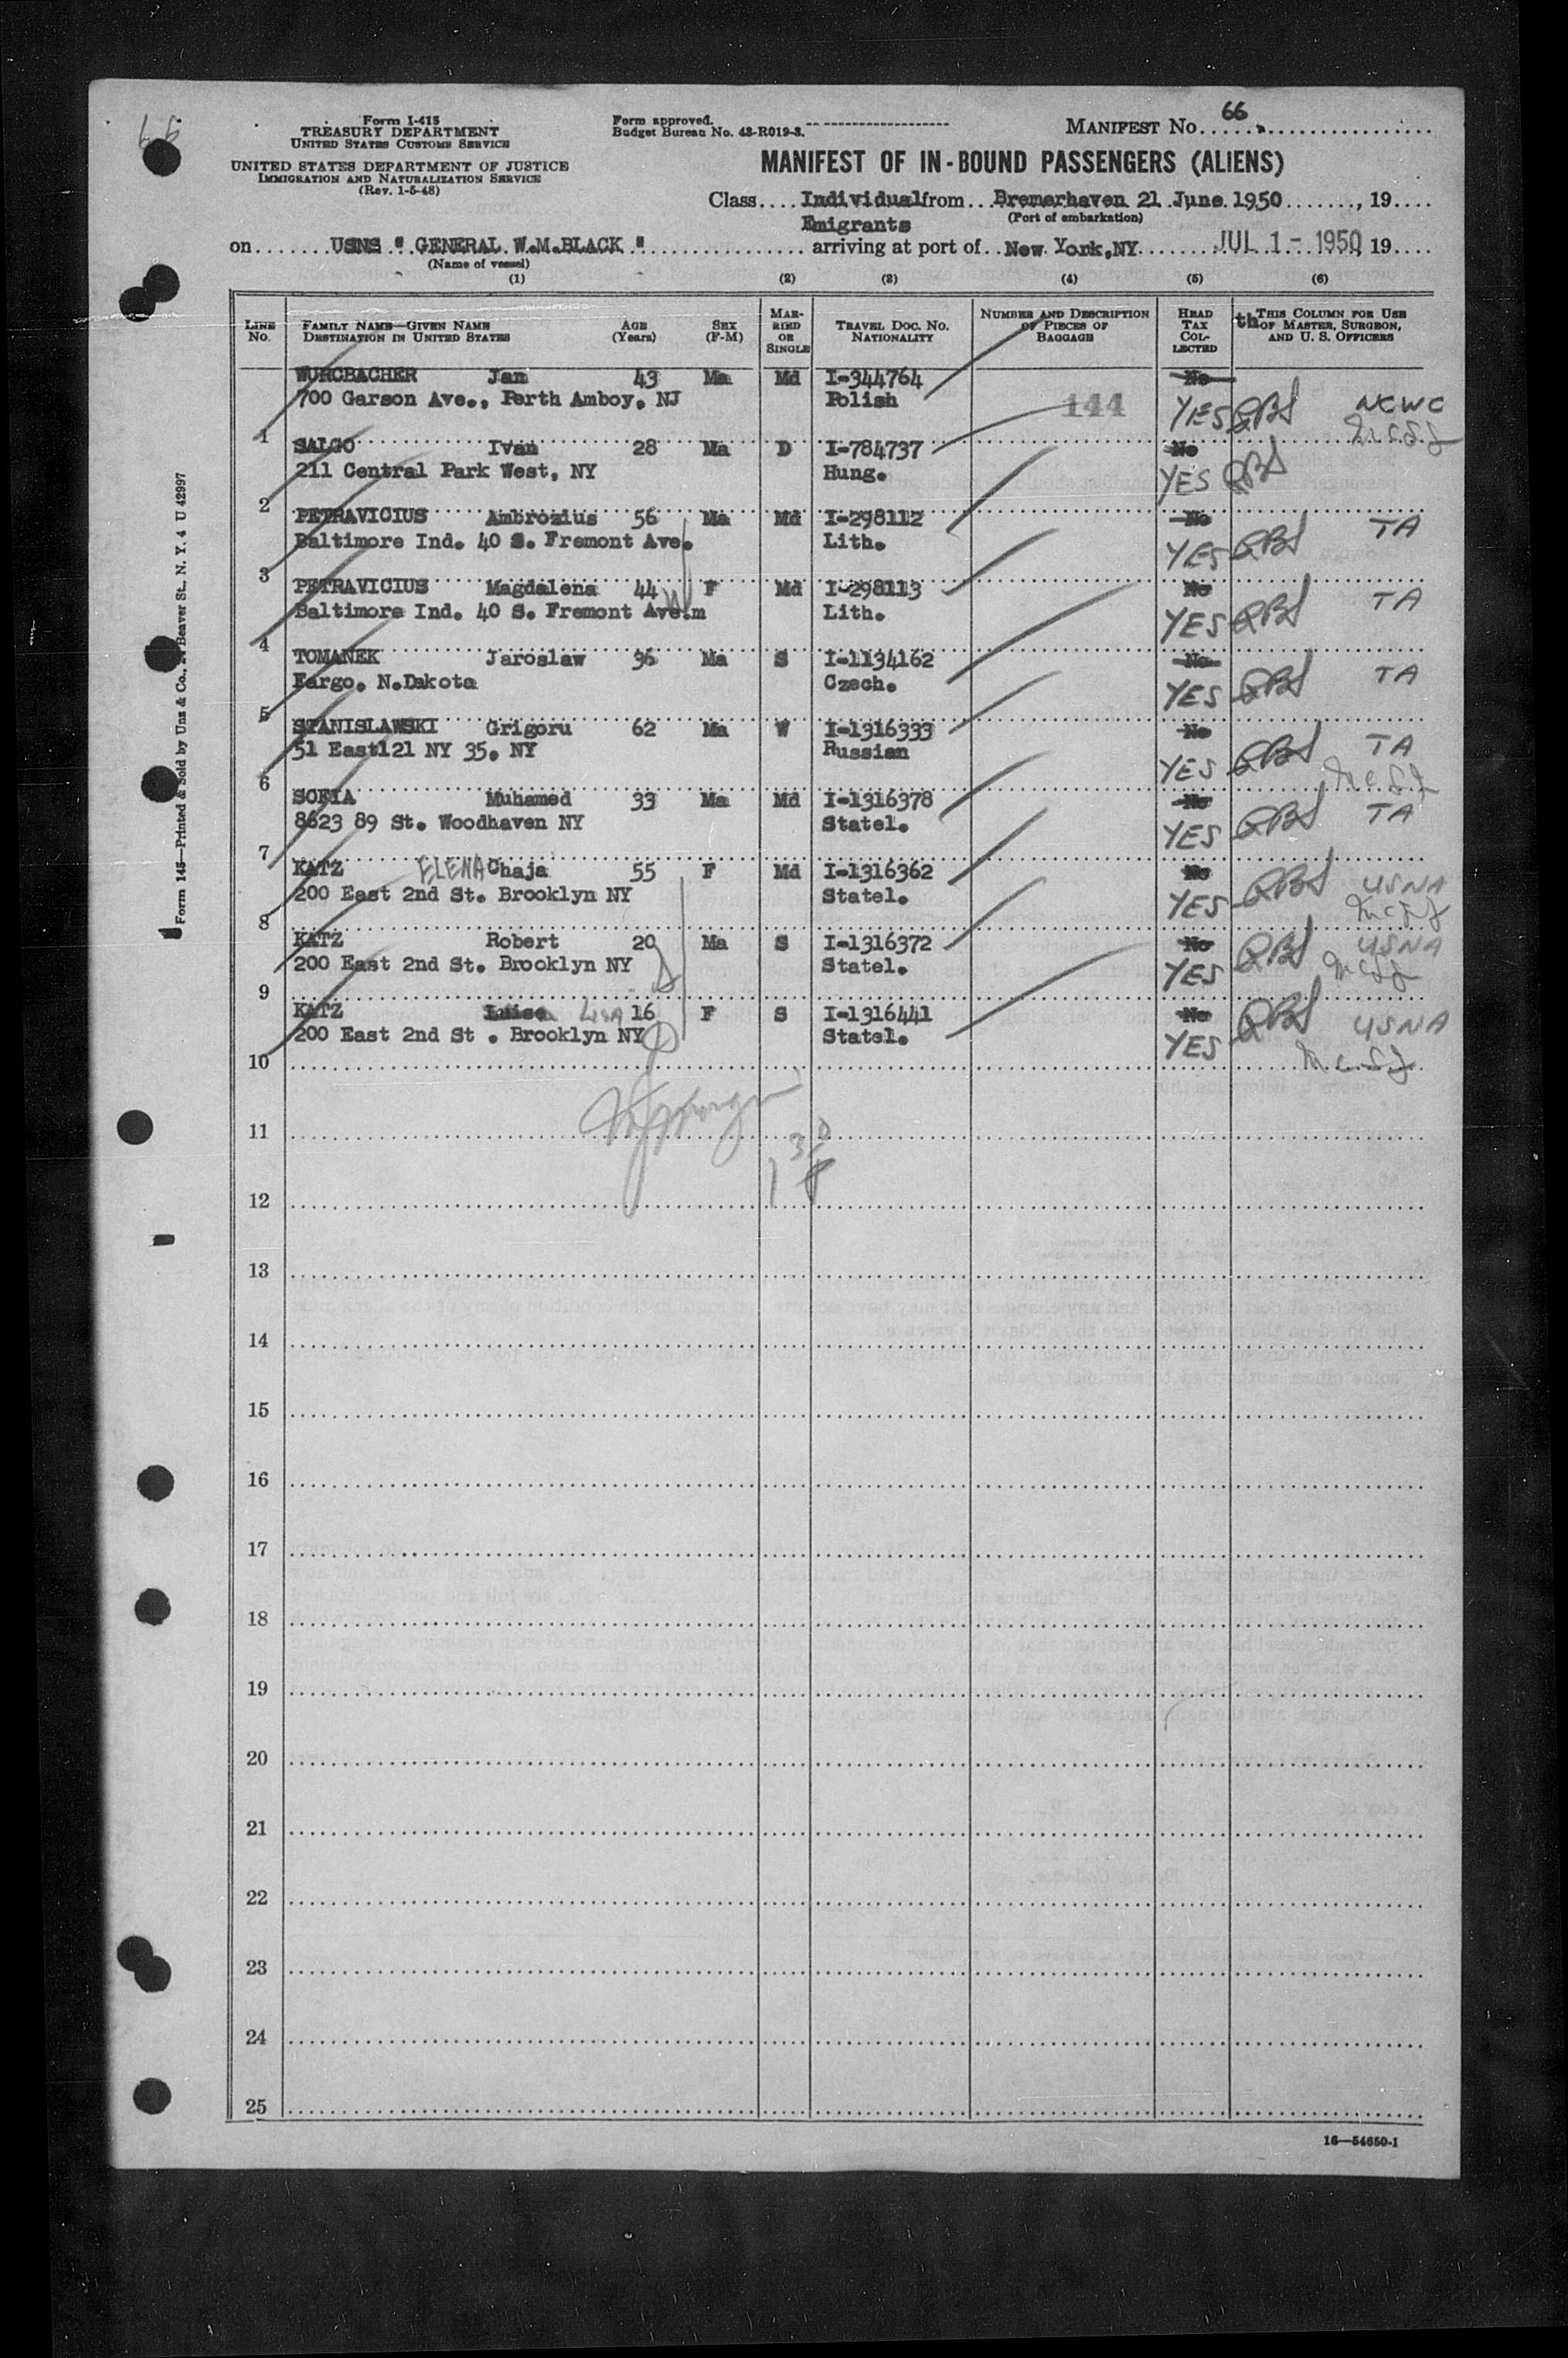 66
Form I-415
TREASURY DEPARTMENT
UNITED STATES CUSTOMS SERVICE
UNITED STATES DEPARTMENT OF JUSTICE
IMMIGRATION AND NATURALIZATION SERVICE
(Rev. 1-5-48)
Form approved.
Budget Bureau No. 43-R019-3.
MANIFEST No.
MANIFEST OF IN-BOUND PASSENGERS (ALIENS)
Class.... Individual from... Bremerhaven 21 June 1950......., 19....
Emigrants (Port of embarkation)
on....... USNS " GENERAL W.M.BLACK "................ arriving at port of.. New York,NY........ JUL 1 - 1950, 19....
(Name of vessel)
(1) (2) (3) (4) (5) (6)
LINE No. FAMILY NAME—GIVEN NAME DESTINATION IN UNITED STATES AGE (Years) SEX (F-M) MARRIED OR SINGLE TRAVEL DOC. NO. NATIONALITY NUMBER AND DESCRIPTION OF PIECES OF BAGGAGE HEAD TAX COLLECTED THIS COLUMN FOR USE OF MASTER, SURGEON, AND U. S. OFFICERS
WURCBACHER Jan 43 Ma Md I-344764 No
700 Garson Ave., Perth Amboy, NJ Polish 144 YES NCWC
1
SALGO Ivan 28 Ma D I-784737 No
211 Central Park West, NY Hung. YES
2
PETRAVICIUS Ambrozius 56 Ma Md I-298112 No TA
Baltimore Ind. 40 S. Fremont Ave. Lith. YES
3
PETRAVICIUS Magdalena 44 F Md I-298113 No TA
Baltimore Ind. 40 S. Fremont Ave.m Lith. YES
4
TOMANEK Jaroslaw 36 Ma S I-1134162 No TA
Fargo. N.Dakota Czech. YES
5
STANISLAWSKI Grigoru 62 Ma W I-1316333 No TA
51 East121 NY 35. NY Russian YES
6
SOFIA Muhamed 33 Ma Md I-1316378 No TA
8623 89 St. Woodhaven NY Statel. YES
7
KATZ ELENA Chaja 55 F Md I-1316362 No USNA
200 East 2nd St. Brooklyn NY Statel. YES
8
KATZ Robert 20 Ma S I-1316372 No USNA
200 East 2nd St. Brooklyn NY Statel. YES
9
KATZ Luise LISA 16 F S I-1316441 No USNA
200 East 2nd St . Brooklyn NY Statel. YES
10
11
12
13
14
15
16
17
18
19
20
21
22
23
24
25
16—54650-1